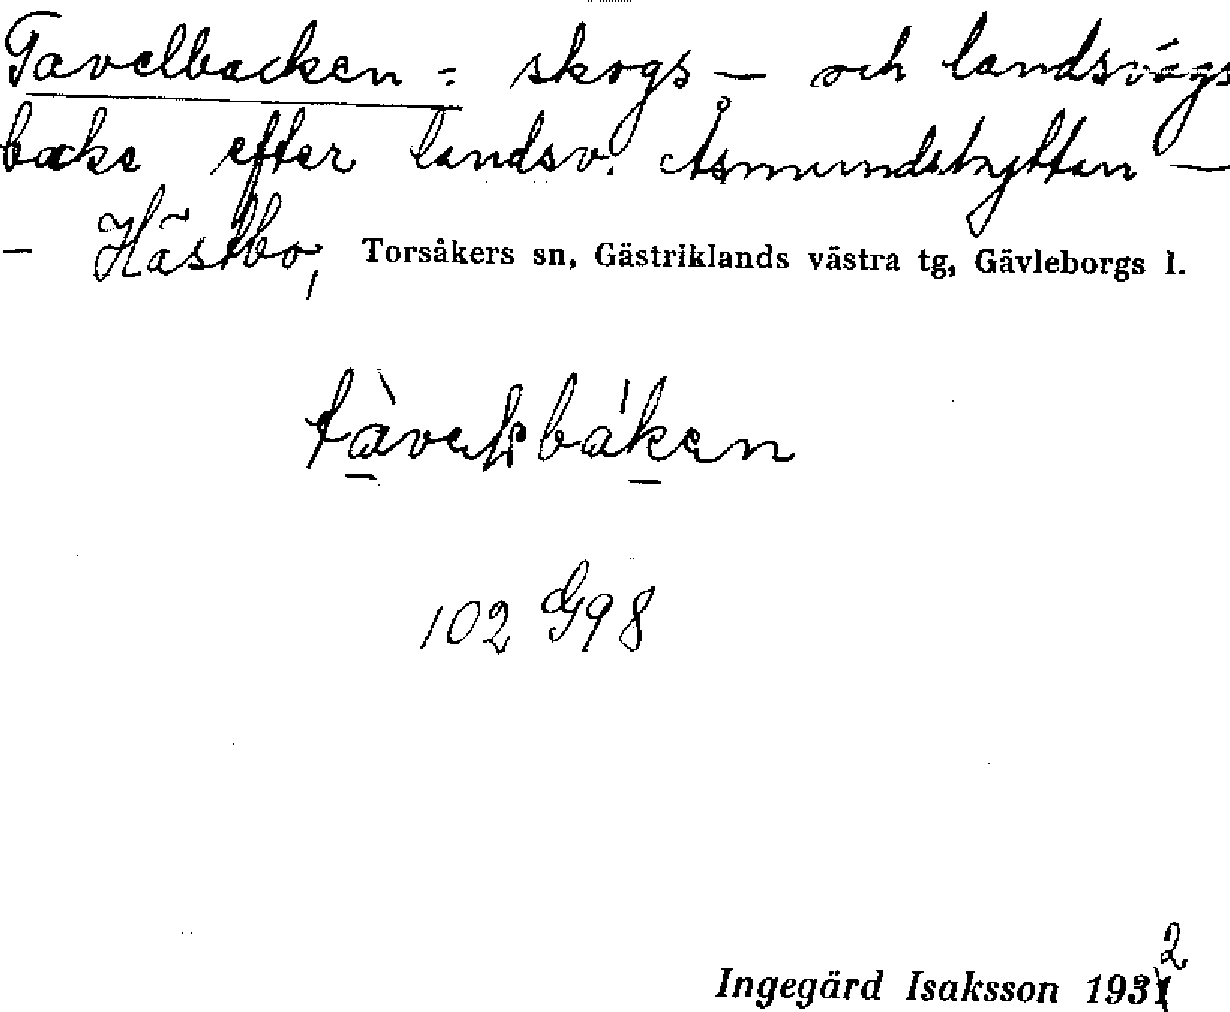 Tavelbacken : skogs - och landsvägs
backe efter landsv. Åsmundshyttan -
- Hästbo, Torsåkers sn, Gästriklands västra tg, Gävleborgs l.
102 G98
Ingegärd Isaksson 1932